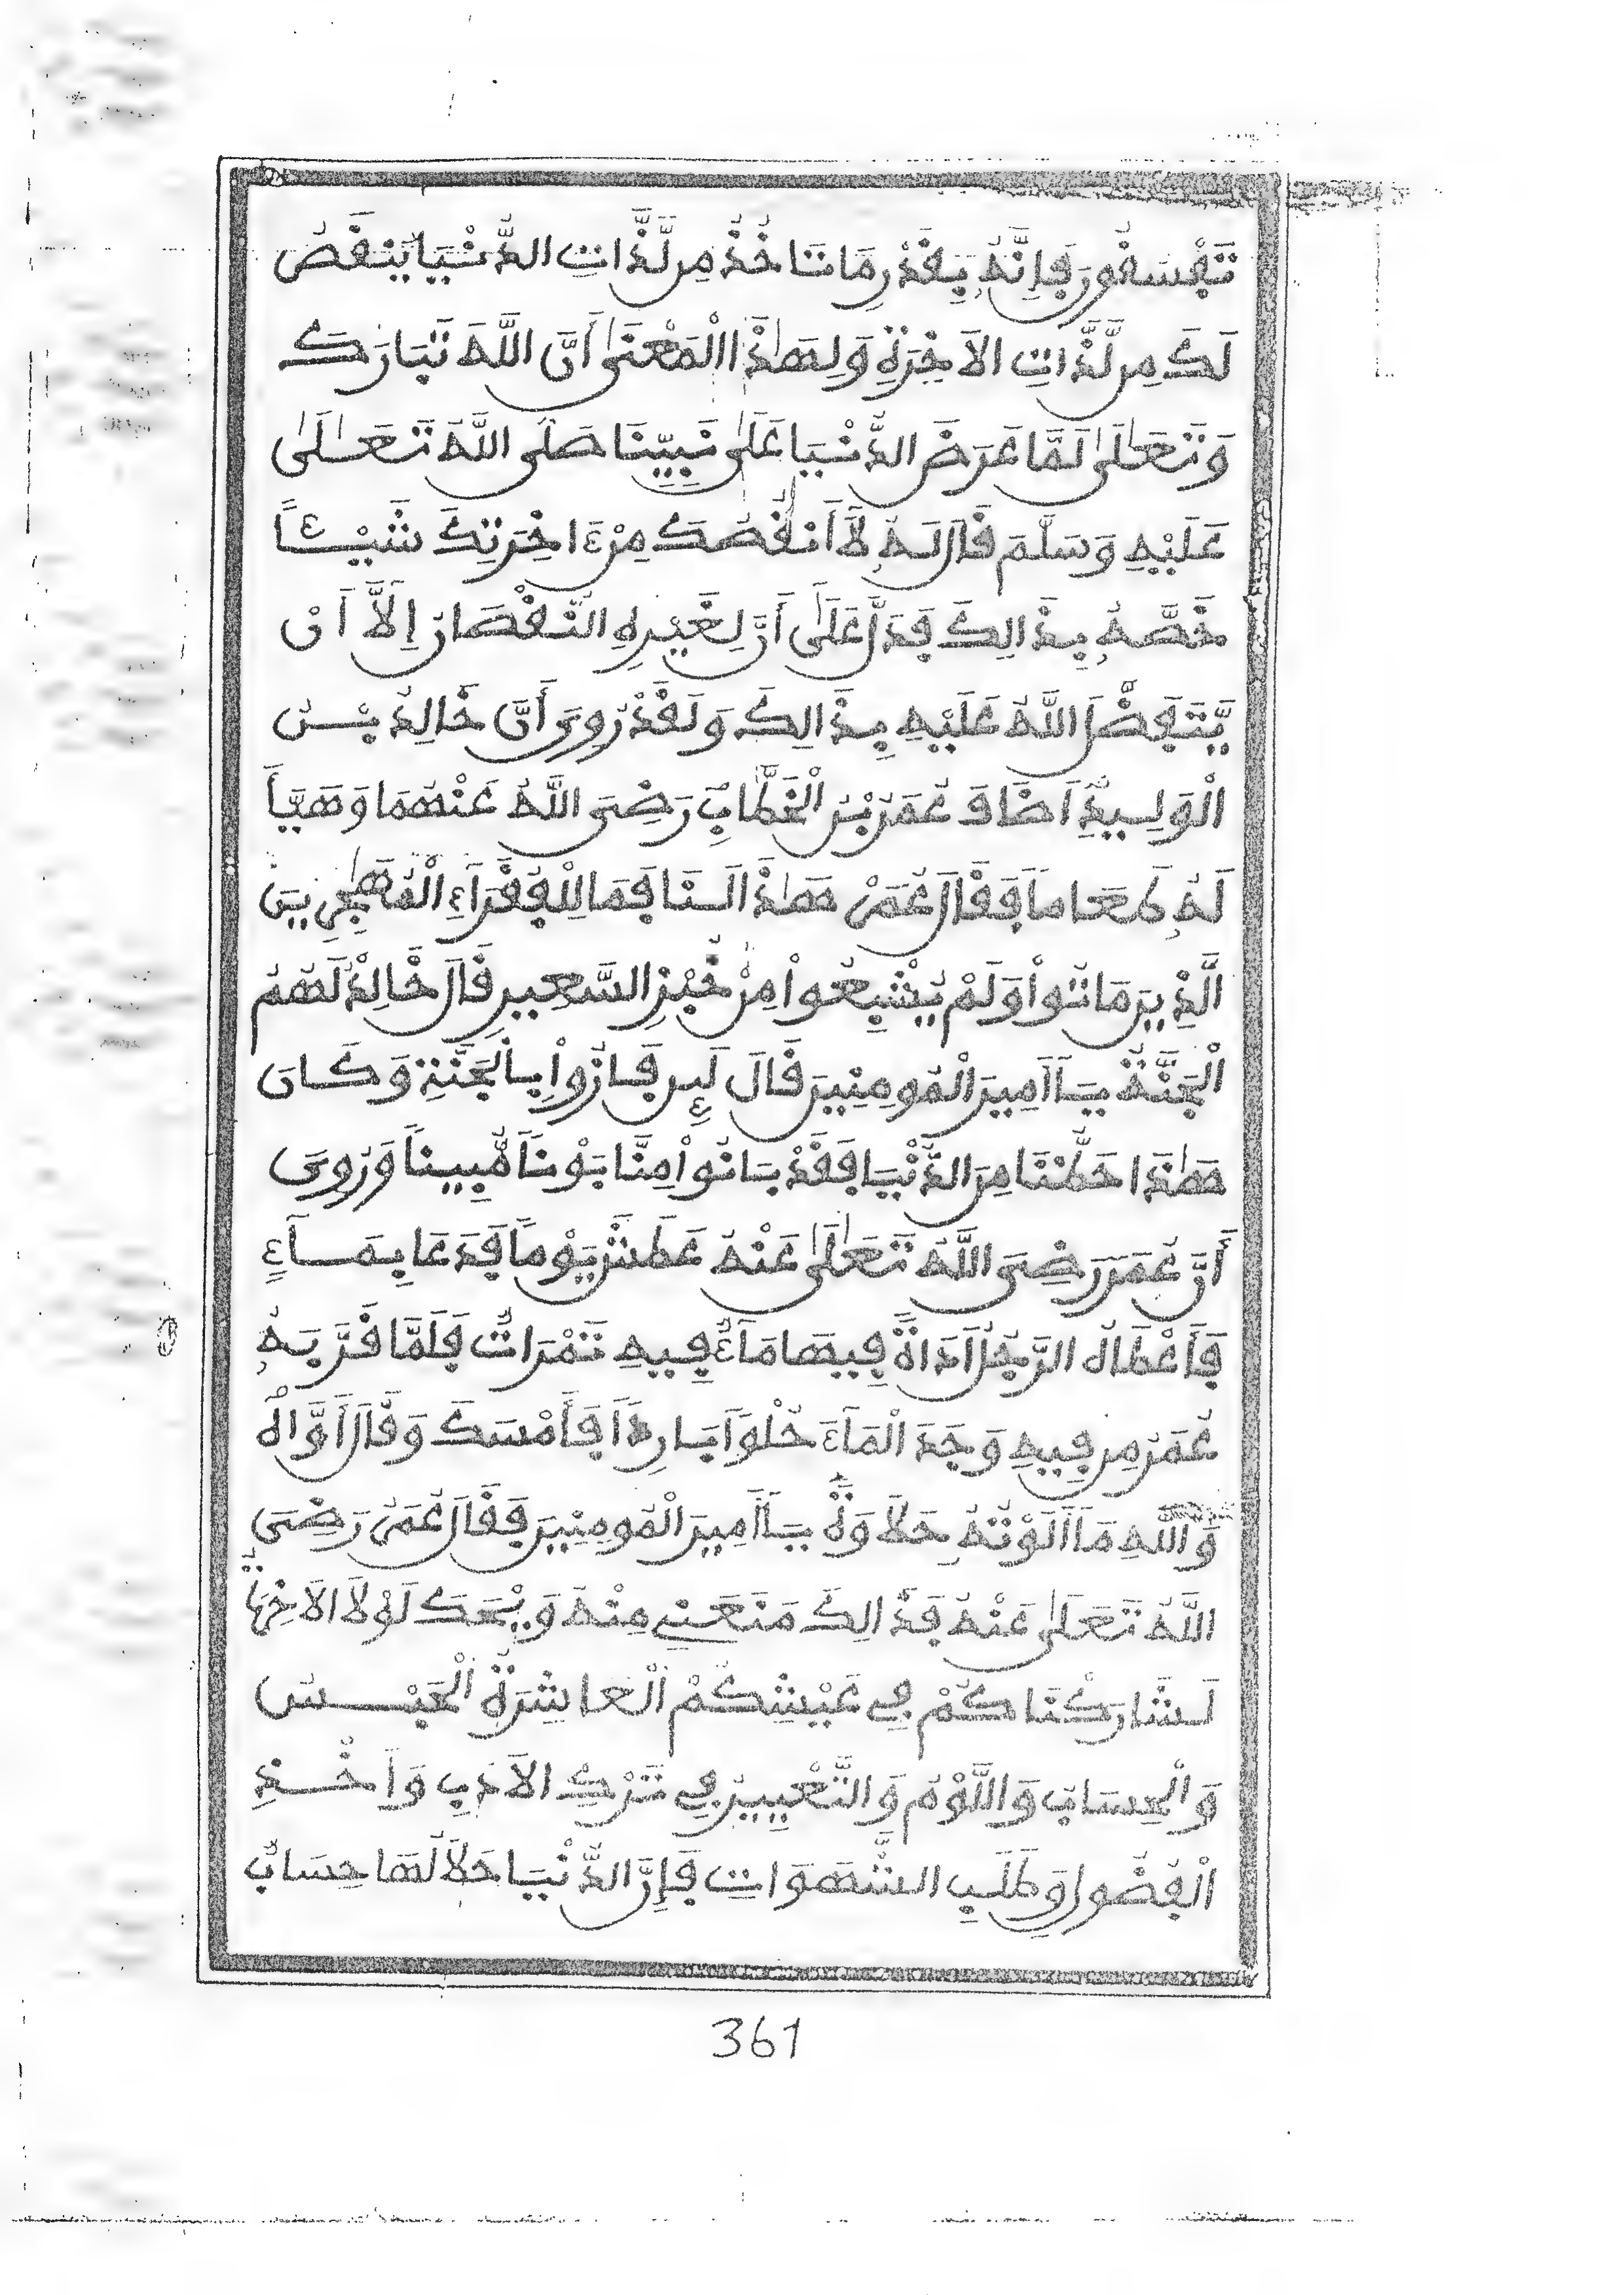 تَفْسُقُونَ فَإِنَّهُ بِقَدْرِ مَا تَاخُذُ مِن لَّذَّاتِ الدُّنْيَا يَنقُصُ
لَكَ مِن لَّذَّاتِ الاَخِرَةِ وَلِهَٰذَا الْمَعْنَىٰ أَنَّ اللَّهَ تَبَارَكَ
وَتَعَالَىٰ لَمَّا عَرَضَ الدُّنْيَا عَلَىٰ نَبِيِّنَا صَلَّى اللَّهُ تَعَالَىٰ
عَلَيْهِ وَسَلَّمَ قَالَ لَهُ لَا أَنقُصُكَ مِنْ ءَاخِرَتِكَ شَيْئاً
خَصَّهُ بِذَالِكَ فَدَلَّ عَلَىٰ أَنَّ لِغَيْرِهِ النُّقْصَانَ إِلَّا أَن
يَّتَفَضَّلَ اللَّهُ عَلَيْهِ بِذَالِكَ وَلَقَدْ رُوِيَ أَنَّ خَالِدَ بْنَ
الْوَلِيدِ اَضَافَ عُمَرَ بْنَ الْخَطَّابِ رَضِيَ اللَّهُ عَنْهُمَا وَهَيَّأَ
لَهُ طَعَاماً فَقَالَ عُمَرُ هَٰذَا لَنَا فَمَا لِلْفُقَرَاءِ الْمُهَٰجِرِينَ
الَّذِينَ مَاتُواْ وَلَمْ يُشْبَعُواْ مِنْ خُبْزِ الشَّعِيرِ قَالَ خَالِدٌ لَهُمُ
الْجَنَّةُ يَا أَمِيرَ الْمُومِنِينَ قَالَ لَئِن فَازُواْ بِالْجَنَّةِ وَكَانَ
هَٰذَا حَظُّنَا مِنَ الدُّنْيَا فَقَدْ بَانُواْ مِنَّا بَوْناً مُّبِيناً وَرُوِيَ
أَنَّ عُمَرَ رَضِيَ اللَّهُ تَعَالَىٰ عَنْهُ عَطِشَ يَوْماً فَدَعَا بِمَاءٍ
فَأَعْطَاهُ الرَّجُلُ أَدَاةً فِيهَا مَاءٌ فِيهِ تَمْرَاتٌ فَلَمَّا قَرَّبَهُ
عُمَرُ مِن فِيهِ وَجَدَ الْمَاءَ حُلْواً بَارِداً فَأَمْسَكَ وَقَالَ أَوَّاهُ
وَاللَّهِ مَا أَلَوْتُهُ حَلَاوَةً يَا أَمِيرَ الْمُومِنِينَ فَقَالَ عُمَرُ رَضِيَ
اللَّهُ تَعَالَىٰ عَنْهُ فَذَالِكَ مَنَعَنِي مِنْهُ وَيْحَكَ لَوْلَا الاَخِرَةُ
لَشَارَكْنَاكُمْ فِي عَيْشِكُمْ الْعَاشِرَةُ الْحَبْسُ
وَالْحِسَابُ وَاللَّوْمُ وَالتَّعْيِيرُ فِي تَرْكِ الاَدَبِ وَأَخْذِ
الْفُضُولِ وَطَلَبِ الشَّهَوَاتِ فَإِنَّ الدُّنْيَا حَلَالَهَا حِسَابٌ
361